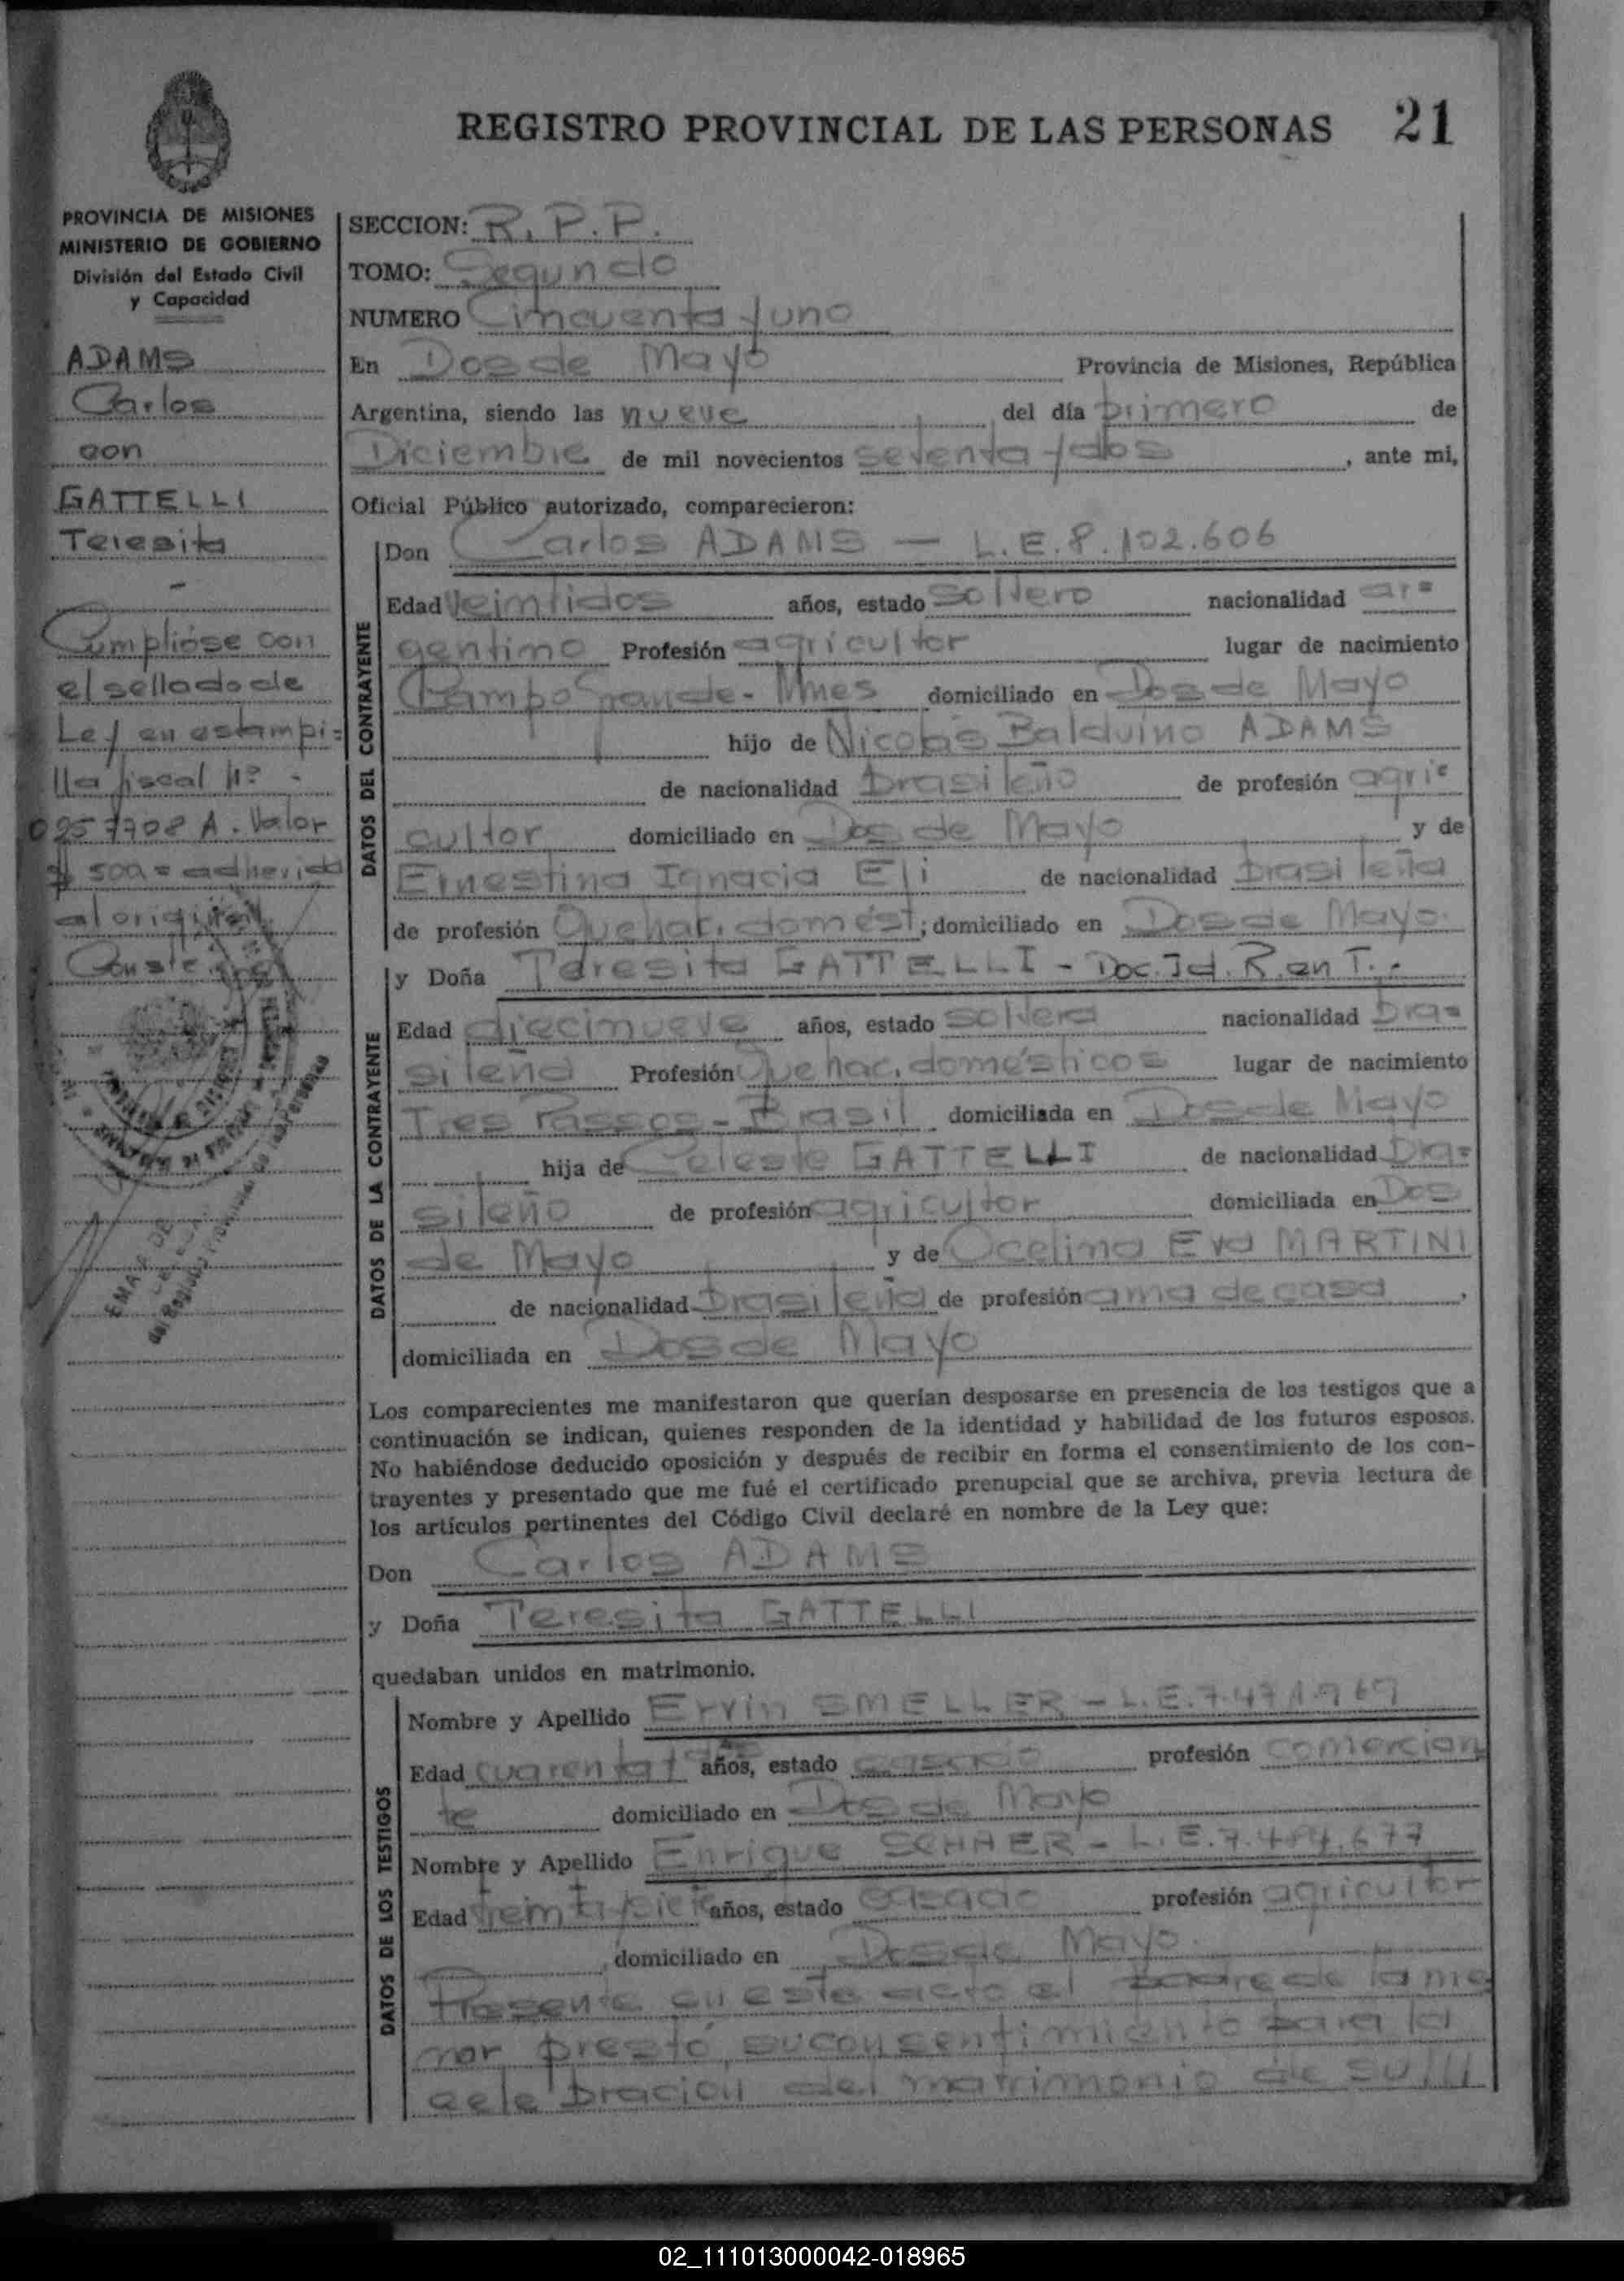 REGISTRO PROVINCIAL DE LAS PERSONAS 21
PROVINCIA DE MISIONES
MINISTERIO DE GOBIERNO
División del Estado Civil
y Capacidad
ADAMS
Carlos
con
GATTELLI
Teresita
-
Cumplióse con
el sellado de
Ley en estampi=
lla fiscal Nº
0257708 A. Valor
$ 500= adherida
al original
Conste
SECCION: R.P.P.
TOMO: Segundo
NUMERO Cincuenta y uno
En Dos de Mayo Provincia de Misiones, República
Argentina, siendo las nueve del día primero de
Diciembre de mil novecientos setenta y dos, ante mi,
Oficial Público autorizado, comparecieron:
DATOS DEL CONTRAYENTE
Don Carlos ADAMS — L.E. 8.102.606
Edad Veintidos años, estado soltero nacionalidad ar=
gentino Profesión agricultor lugar de nacimiento
Campo Grande - Mnes domiciliado en Dos de Mayo
hijo de Nicolás Balduino ADAMS
de nacionalidad brasileño de profesión agri=
cultor domiciliado en Dos de Mayo y de
Ernestina Ignacia Eli de nacionalidad brasileña
de profesión Quehac. domést; domiciliado en Dos de Mayo.
DATOS DE LA CONTRAYENTE
y Doña Teresita GATTELLI - Doc. Id. R. en T. -
Edad diecinueve años, estado soltera nacionalidad bra=
sileña Profesión Quehac. domésticos lugar de nacimiento
Tres Passos - Brasil domiciliada en Dos de Mayo
hija de Celeste GATTELLI de nacionalidad bra=
sileño de profesión agricultor domiciliada en Dos
de Mayo y de Ocelina Eva MARTINI
de nacionalidad brasileña de profesión ama de casa,
domiciliada en Dos de Mayo
Los comparecientes me manifestaron que querían desposarse en presencia de los testigos que a
continuación se indican, quienes responden de la identidad y habilidad de los futuros esposos.
No habiéndose deducido oposición y después de recibir en forma el consentimiento de los con-
trayentes y presentado que me fué el certificado prenupcial que se archiva, previa lectura de
los artículos pertinentes del Código Civil declaré en nombre de la Ley que:
Don Carlos ADAMS
y Doña Teresita GATTELLI
quedaban unidos en matrimonio.
DATOS DE LOS TESTIGOS
Nombre y Apellido Ervin SMELLER - L.E. 7.471.969
Edad cuarenta y dos años, estado casado profesión comercian
te domiciliado en Dos de Mayo
Nombre y Apellido Enrique SCHAER - L.E. 7.484.677
Edad treinta y siete años, estado casado profesión agricultor
domiciliado en Dos de Mayo.
Presente en este acto el padre de la me
nor prestó su consentimiento para la
celebracion del matrimonio de su
02_111013000042-018965